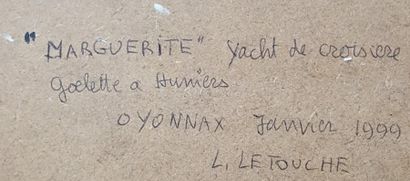 "MARGUERITE" Yacht de croisiere
goelette a Huniers
OYONNAX Janvier 1999
L. LETOUCHE